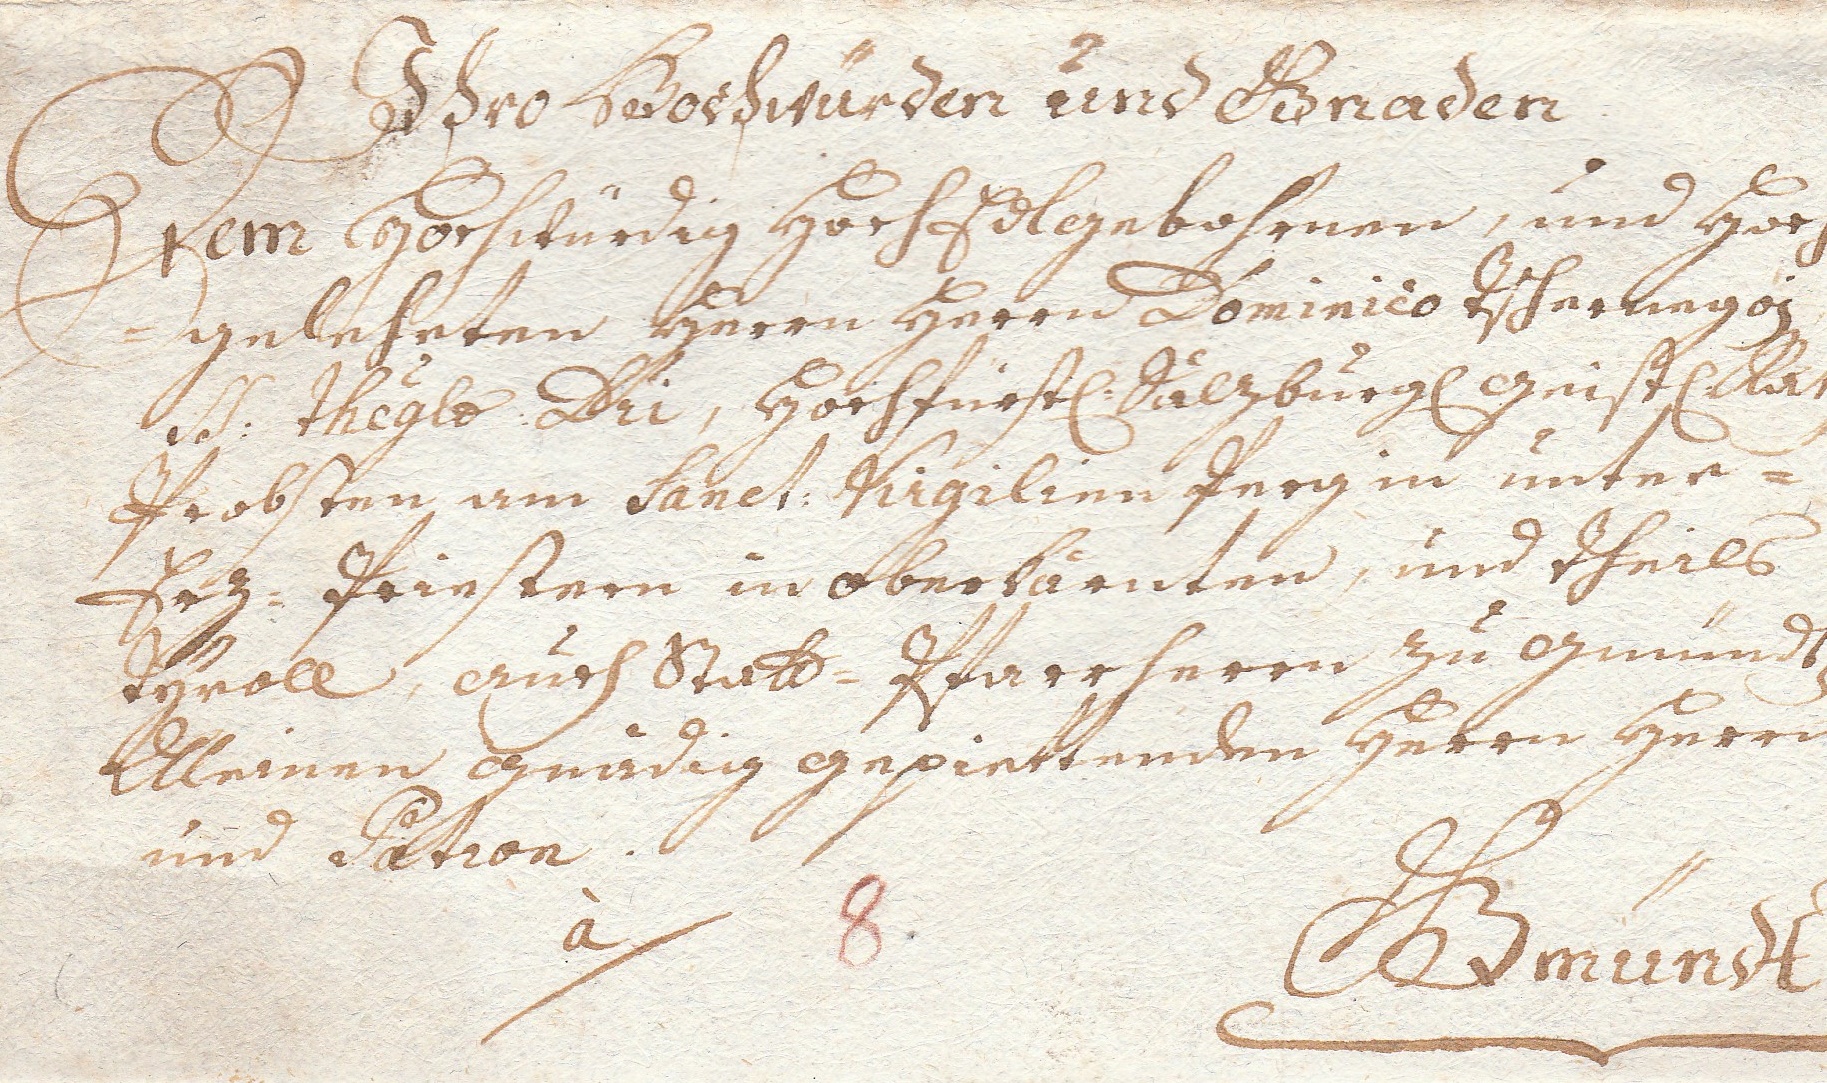 Ihro Hochwürden und Gnaden
Dem Hochwürdig HochEdlgebohrnen, und Hoch
=gelehrten Herrn Herrn Dominico Tschernegoj
SS: Theglæ: Dri, Hochfürstl: Salzburgl geistl: Rat
Probsten am Sanct: Virgilien Perg in unter=
Erz= Priestern in oberkärnten, und theils
Tÿroll, auch Statt= Pfarrherrn zu Gmündt
Meinen gnädig gepiettenden Herrn Herrn
und Patron.
à
8
Gmündt